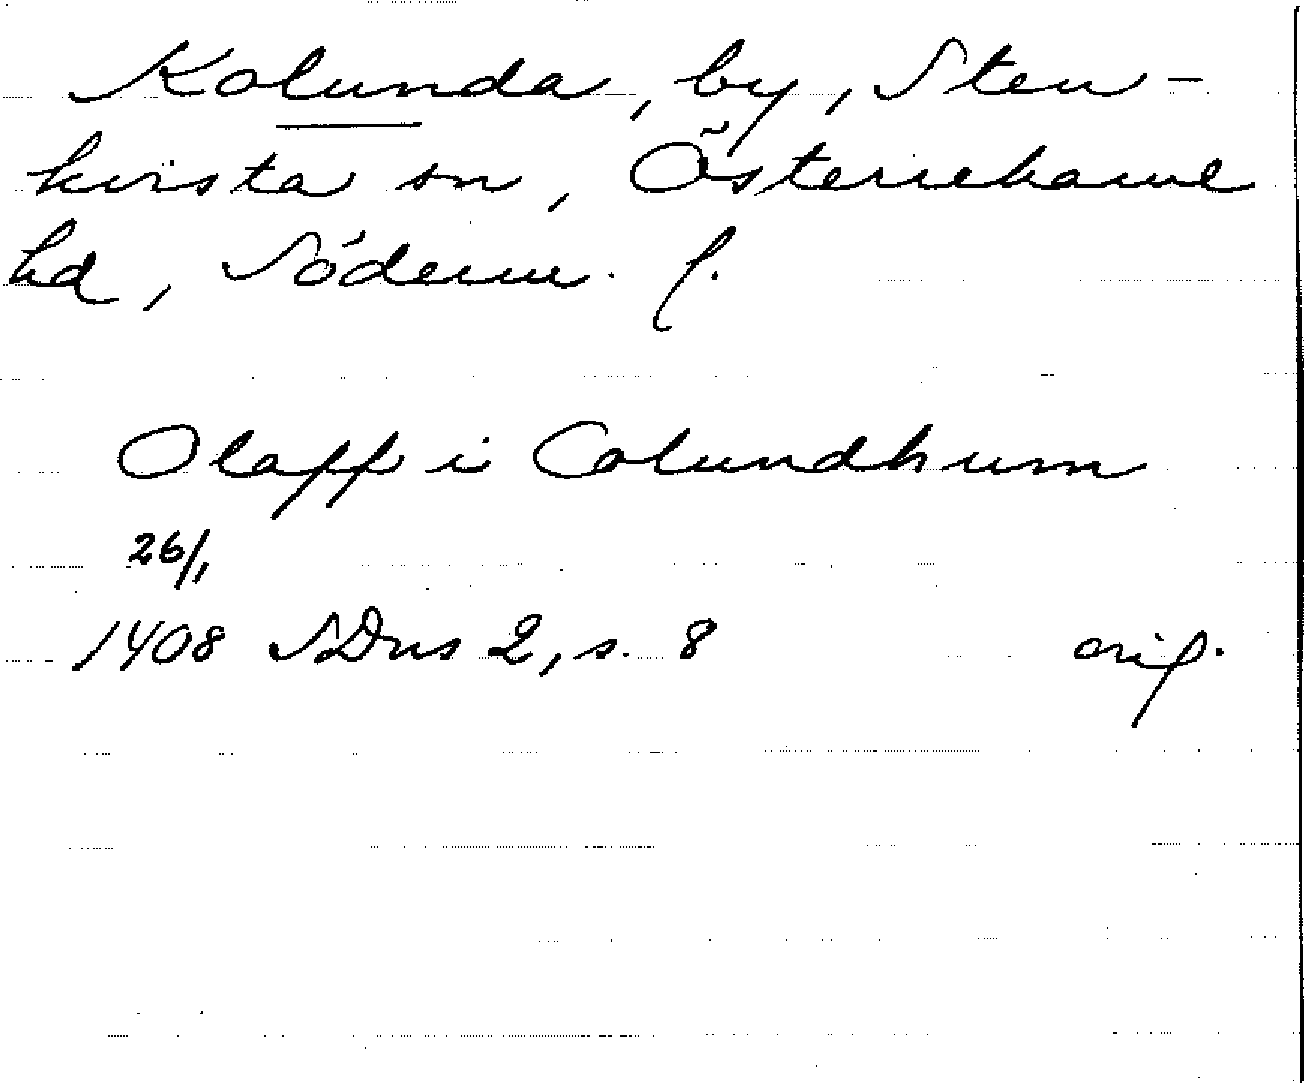 Kolunda, by, Sten-
kvista sn, Österrekarne
hd, Söderm. l.
Olapp i Colundhum
26/1
1408 SDns 2, s. 8 orig.